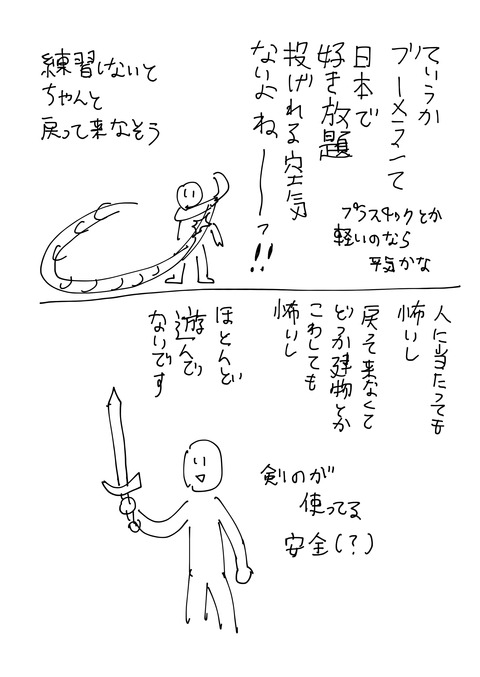 ていうか
ブーメランて
日本で
好き放題
投げれる空気
ないよねーーッ!!
プラスチックとか
軽いのなら
平気かな
練習しないと
ちゃんと
戻って来なそう
人に当たっても
怖いし
戻って来なくて
どっか建物とか
こわしても
怖いし
ほとんど
遊んで
ないです
剣のが
使ってる
安全(?)